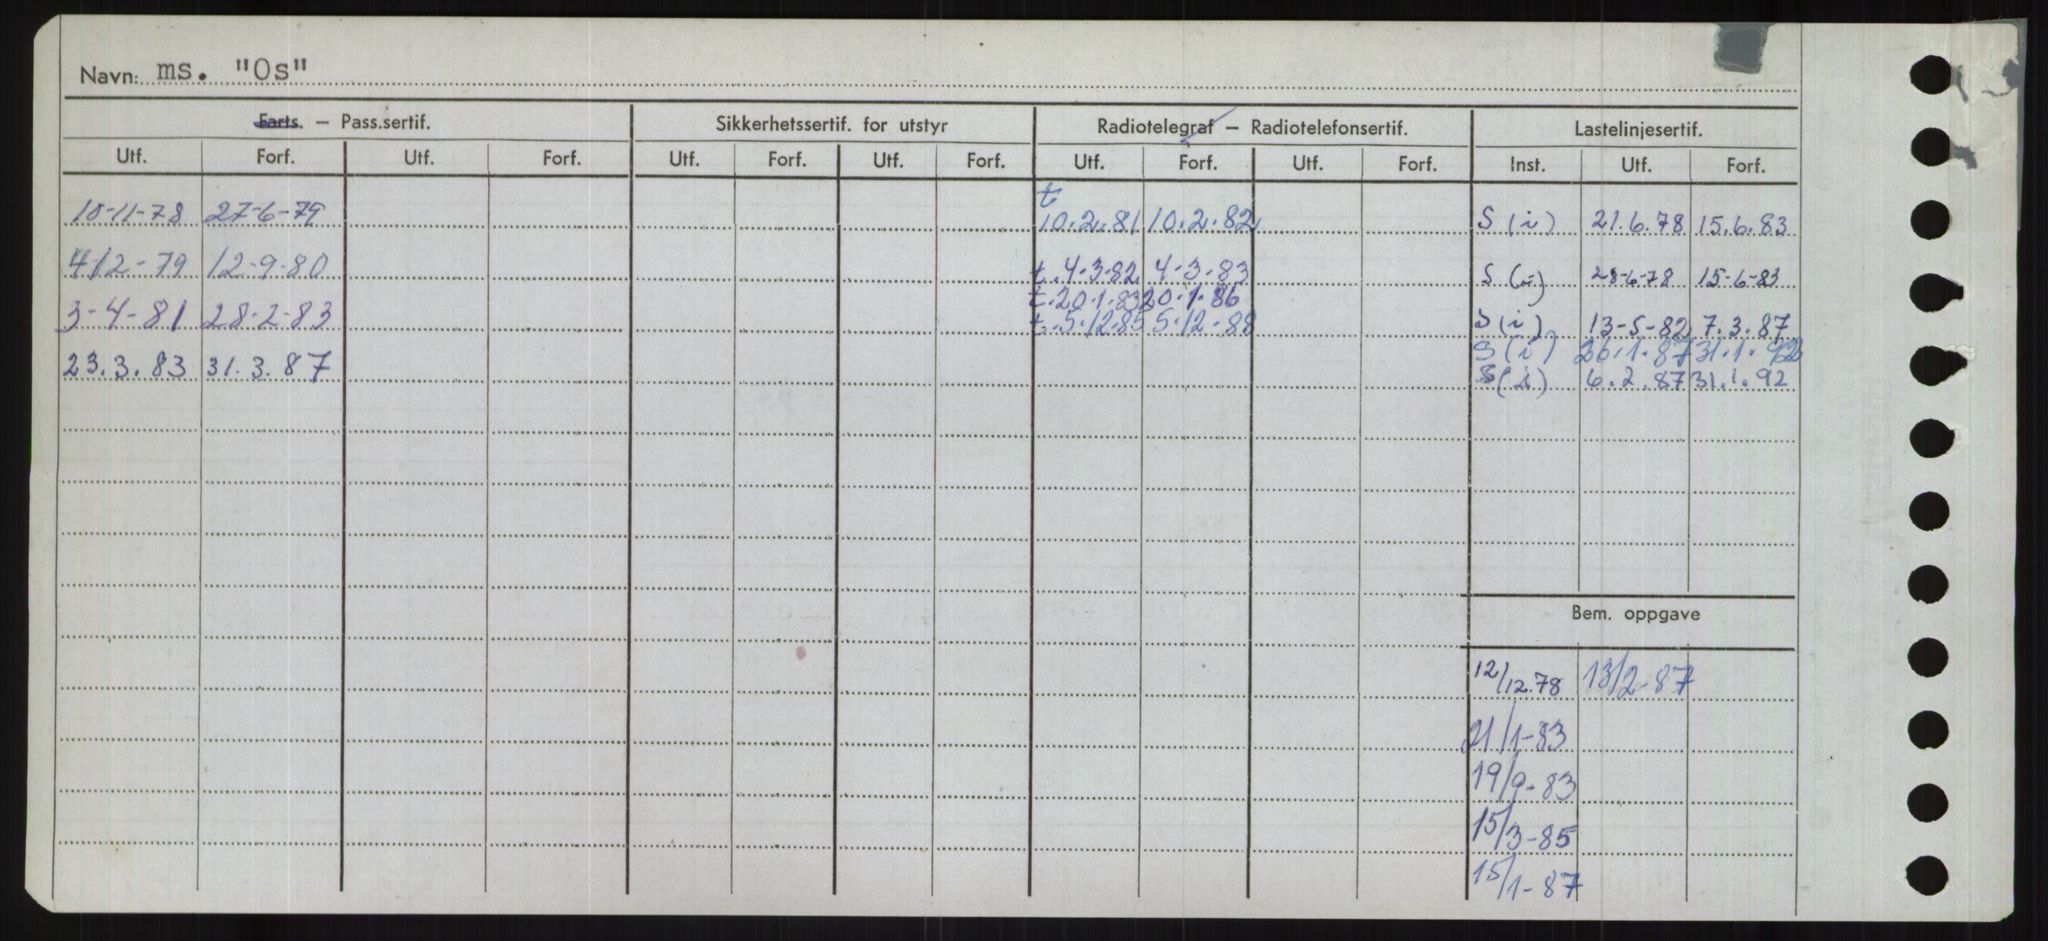 Navn: ms. "Os"
Farts. — Pass.sertif. Sikkerhetssertif. for utstyr Radiotelegraf — Radiotelefonsertif. Lastelinjesertif.
Utf. Forf. Utf. Forf. Utf. Forf. Utf. Forf. Utf. Forf. Utf. Forf. Inst. Utf. Forf.
t
10-11-78 27-6-79 10.2.81 10.2.82 S (i) 21.6.78 15.6.83
4/12-79 12-9-80 t. 4-3-82 4-3-83 S (i) 28-6-78 15-6-83
t. 20.1.83 20.1.86
3-4-81 28-2-83 t. 5.12-85 5.12-88 S (i) 13-5-82 7.3.87
S (i) 26.1.87 31.1.92
23.3.83 31.3.87 S (i) 6.2.87 31.1.92
Bem. oppgave
12/12.78 13/2-87
21/1-83
19/9-83
15/3-85
15/1-87